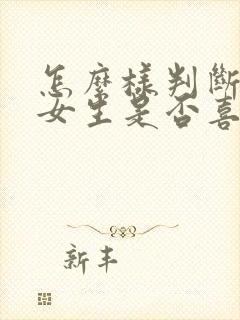 怎麼樣判斷
女生是否喜
新丰